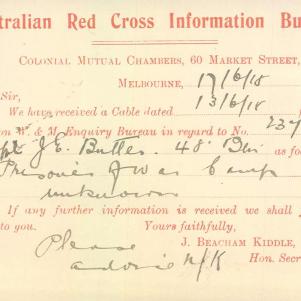 tralian Red Cross Information Bu
Colonial Mutual Chambers, 60 Market Street,
Melbourne, 17/6/18
Sir,
We have received a Cable dated 13/6/18
on W. & M. Enquiry Bureau in regard to No. 237
J. E. Butler. 48 Bn as fo
Prisoner of War Camp
unknown
If any further information is received we shall
to you. Yours faithfully,
Please J. Beacham Kiddle,
advise N/K Hon. Secr